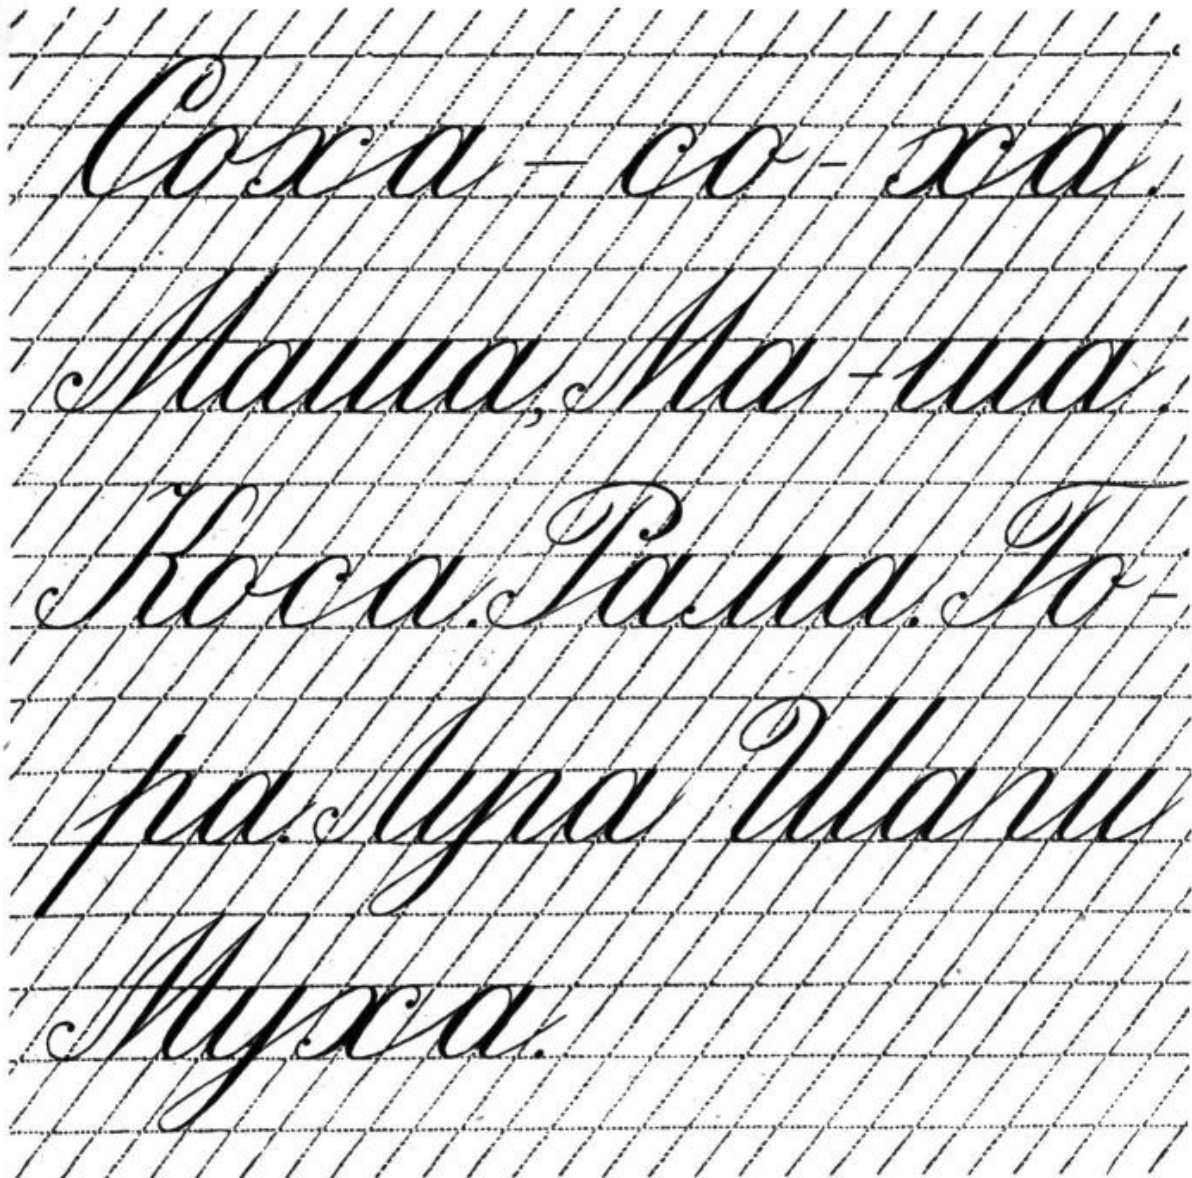 Соха – со - ха.
Маша, Ма - ша.
Коса. Рама. Го -
ра. Лупа Шаги
Муха.